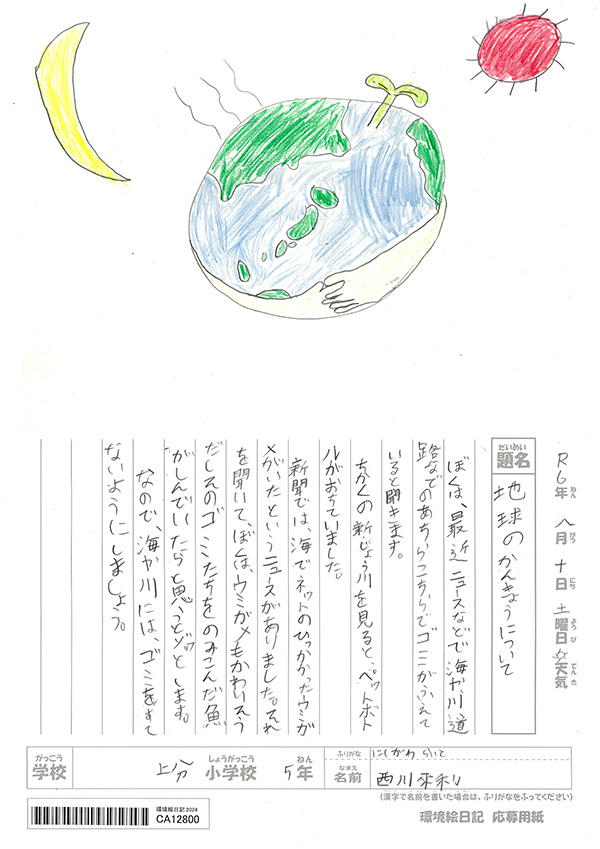 R6年 八月 十日 土曜日 天気
ねん がつ にち ようび てんき
だいめい
題名 地球のかんきょうについて
ぼくは、最近ニュースなどで海や川、道
路なでのあちらこちらでゴミがふえて
いると聞きます。
ちかくの新じょう川を見ると、ペットボト
ルがおちていました。
新聞では、海でネットのひっかかったウミガ
メがいたというニュースがありました。それ
を聞いて、ぼくは、ウミガメもかわいそう
だしそのゴミたちをのみこんだ魚
がしんでいたらと思うとゾッとします。
なので、海や川には、ゴミをすて
ないようにしましょう。
がっこう しょうがっこう ねん
学校 上分 小学校 5年
ふりがな にしがわ らいと
なまえ
名前 西川
(漢字で名前を書いた場合は、ふりがなをふってください)
環境絵日記2024
CA12800
環境絵日記 応募用紙